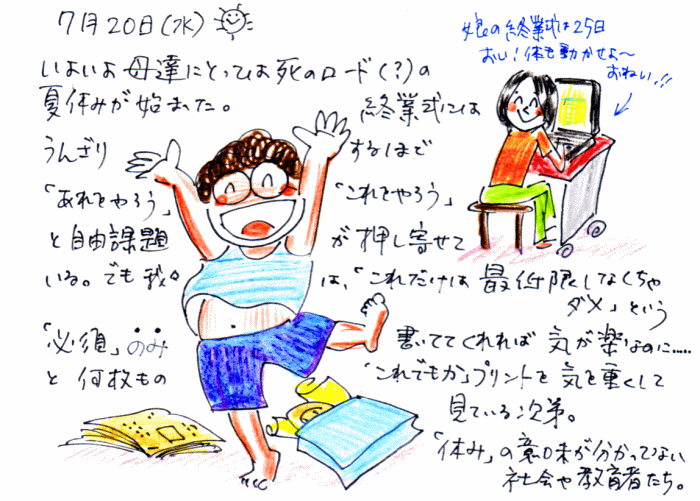 7月20日(水)
いよいよ母達にとっては死のロード(?)の
夏休みが始まった。 終業式には
うんざり するほど
「あれをやろう」 「これをやろう」
と自由課題 が押し寄せて
いる。でも我々 は、「これだけは最低限しなくちゃ
ダメ」という
「必須」のみ 書いててくれれば気が楽なのに……
と何枚もの 「これでもか」プリントを気を重くして
見ている次第。
「休み」の意味が分かってない
社会や教育者たち。
娘の終業式は25日
おい!体も動かせよ〜
おねい!!